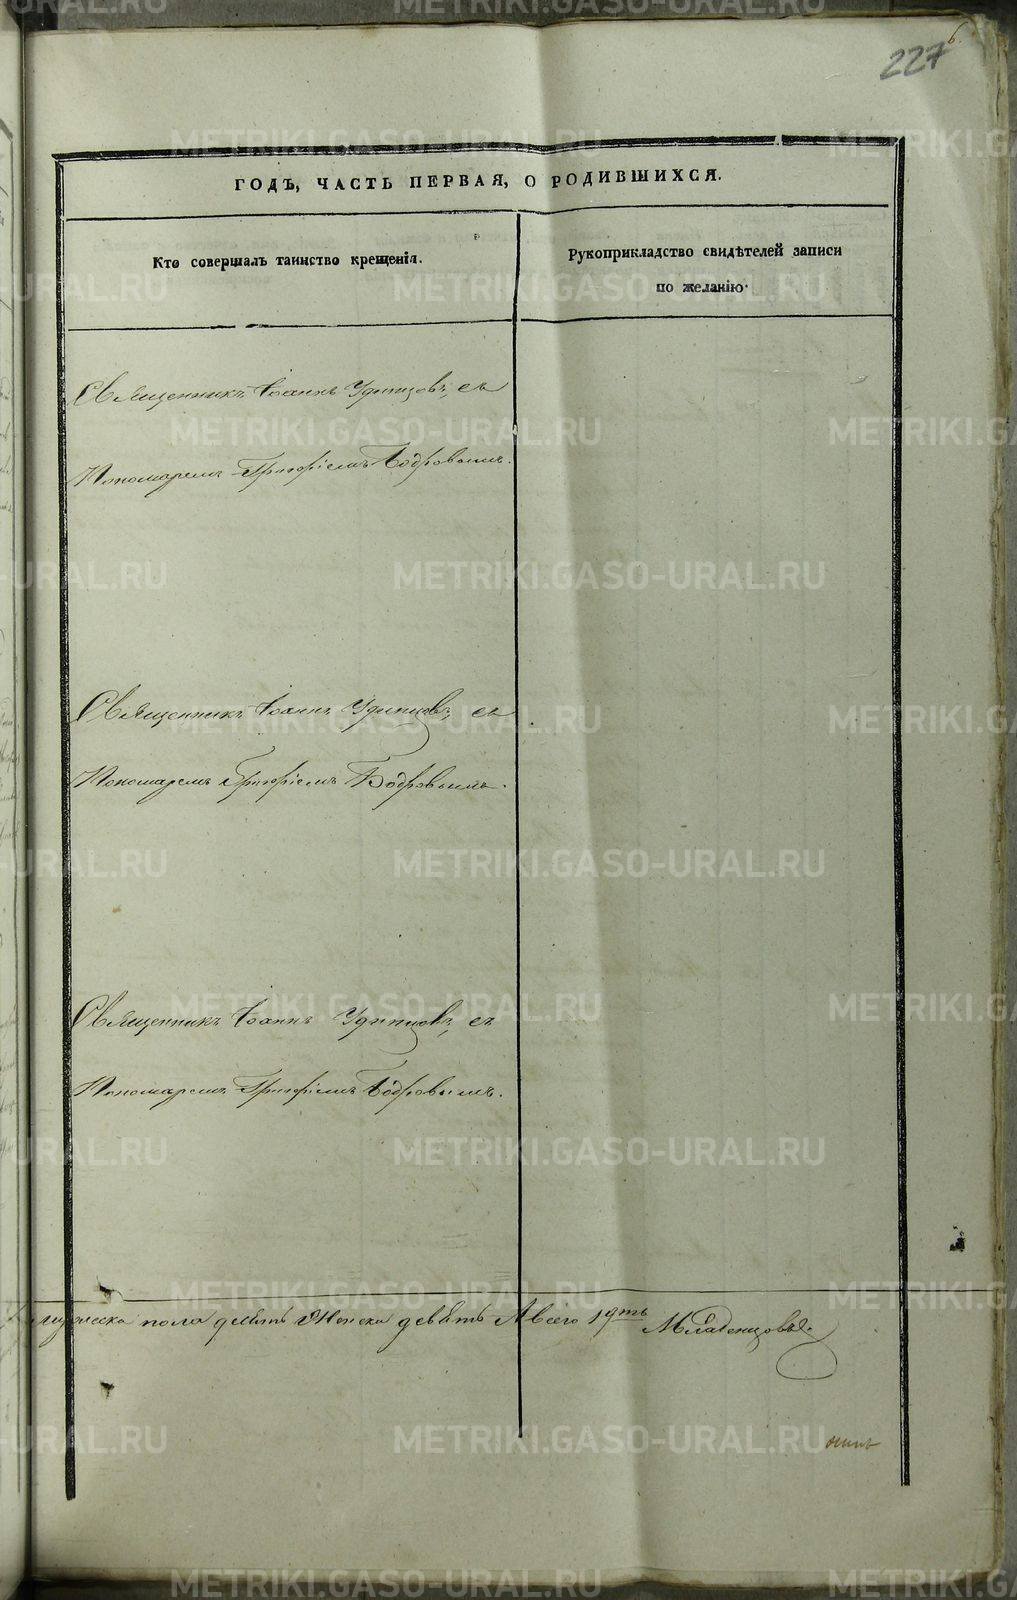 6.
227
ГОДЪ, ЧАСТЬ ПЕРВАЯ, О РОДИВШИХСЯ.
Кто совершалъ таинство крещенія.
Рукоприкладство свидѣтелей записи
по желанію.
Священникъ Іоаннъ Удинцовъ, съ
Пономаремъ Григоріемъ Бодровымъ.
Священникъ Іоаннъ Удинцовъ, съ
Пономаремъ Григоріемъ Бодровымъ.
Священникъ Іоаннъ Удинцовъ, съ
Пономаремъ Григоріемъ Бодровымъ.
мужеска пола девять Женска девять А всего 19ть Младенцовъ.
METRIKI.GASO-URAL.RU